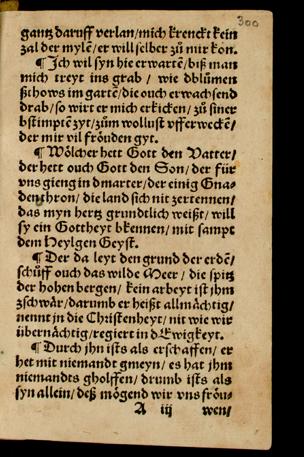 300
gantz daruff verlan/mich krenckt kein
zal der mylẽ/er will selber zů mir kon.
¶ Ich wil syn hie erwartẽ/biß man
mich treyt ins grab / wie dblůmen
ßthows im gartẽ/die ouch erwachsend
drab/so wirt er mich erkicken/ zů siner
bstimptẽ zyt/zům wollust vfferweckẽ/
der mir vil fröuden gyt.
¶ Wölcher hett Gott den Vatter/
der hett ouch Gott den Son/ der für
vns gieng in dmarter/der einig Gna-
denthron/ die land sich nit zertennen/
das myn hertz grundtlich weißt/ will
sy ein Gottheyt bkennen/ mit sampt
dem Heylgen Geyst.
¶ Der da leyt den grund der erdẽ/
schůff ouch das wilde Meer/ die spitz
der hohen bergen/ kein arbeyt ist jhm
zschwår/darumb er heißt allmåchtig/
nennt in die Christenheyt/ nit wie wir
übernåchtig/regiert in dEwigkeyt.
¶ Durch jhn ists als erschaffen/ er
het mit niemandt gmeyn/ es hat jhm
niemandts gholffen/ drumb ists als
syn allein/ deß mögend wir vns fröu-
A iij wen/